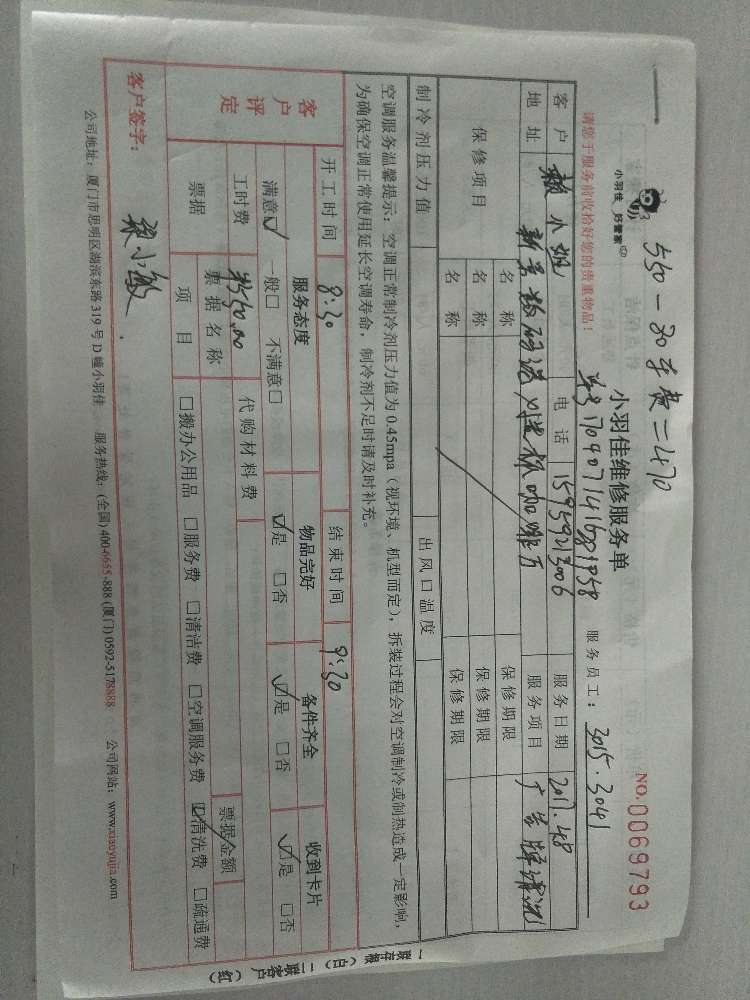 550-80车费=470
小羽佳 好管家
小羽佳维修服务单
NO.0069793
单号170407141
服务员工：3015.3041
请您于服务前收拾好您的贵重物品！
客户 赖小姐 电话 15959213006 服务日期 2017.4.8
地址 服务项目 广告牌清洗
保修项目 名称 保修期限
名称 保修期限
名称 保修期限
制冷剂压力值 出风口温度
空调服务温馨提示：空调正常制冷剂压力值为0.45mpa（视环境、机型而定），拆装过程会对空调制冷或制热造成一定影响，
为确保空调正常使用延长空调寿命，制冷剂不足时请及时补充。
开工时间 8:30 结束时间 9:30
客户评定 服务态度 物品完好 备件齐全 收到卡片
满意☑ 一般□ 不满意□ ☑是 □否 ☑是 □否 ☑是 □否
工时费 550.00 代购材料费
票据 票据名称 票据金额
项目 □搬办公用品 □服务费 □清洁费 □空调服务费 ☑清洗费 □疏通费
客户签字：
公司地址：厦门市思明区湖滨东路319号D幢小羽佳 服务热线：(全国) 400-6655-888 (厦门) 0592-5178888 公司网站：www.xiaoyujia.com
一联存根（白） 二联客户（红）